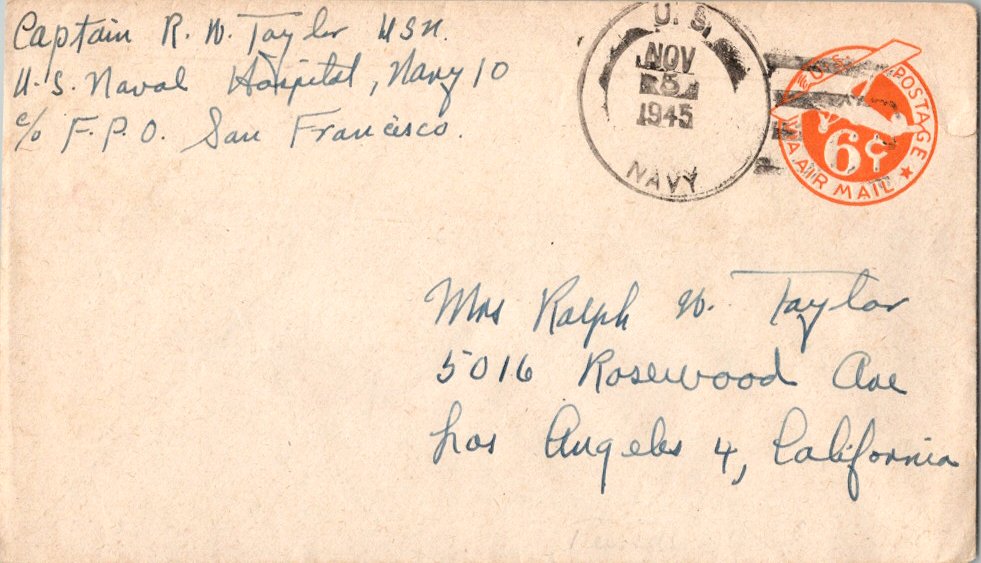 Captain R. W. Taylor USN.
U.S. Naval Hospital, Navy 10
c/o F.P.O. San Francisco.
U. S.
NOV
8
1945
NAVY
U.S. POSTAGE
6¢
VIA AIR MAIL
Mrs Ralph W. Taylor
5016 Rosewood Ave
Los Angeles 4, California